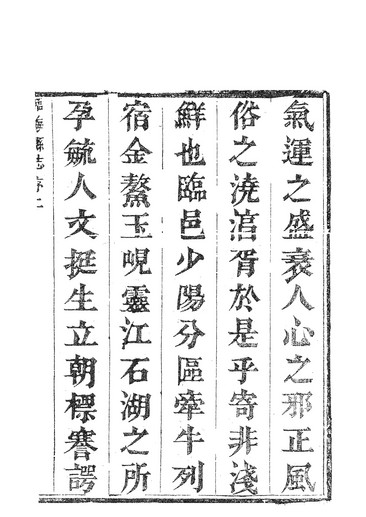 氣運之盛衰人心之邪正風
俗之澆淳胥於是乎寄非淺
鮮也臨邑少陽分區牽牛列
宿金鰲玉峴靈江石湖之所
孕毓人文挺生立朝標謇諤
縣志序二